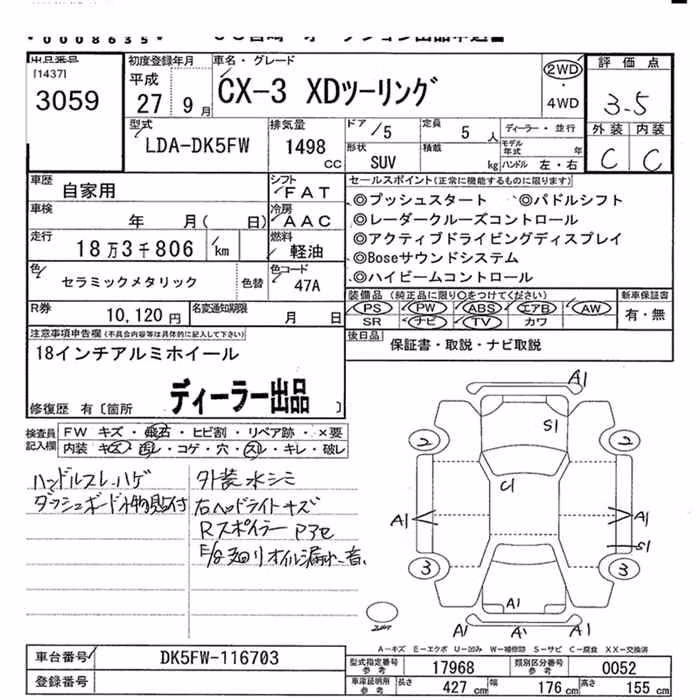 0008635
出品番号
[1437]
3059
初度登録年月
平成
27 9月
車名・グレード
CX-3 XDツーリング
2WD
・
4WD
評価点
3.5
外装 内装
C C
型式
LDA-DK5FW
排気量
1498
CC
ドア /5
定員 5 人
形状 SUV
積載 kg
ディーラー・並行
モデル年式 年
ハンドル 左・右
車歴 自家用
シフト FAT
車検 年 月( 日)
冷房 AAC
走行 18万3千806 km
燃料 軽油
色 セラミックメタリック 色替
色コード 47A
R券 10,120円
名変通知期限 月 日
セールスポイント(正常に機能するものに限ります)
◎プッシュスタート ◎パドルシフト
◎レーダークルーズコントロール
◎アクティブドライビングディスプレイ
◎Boseサウンドシステム
◎ハイビームコントロール
装備品(純正品に限り○をつけてください)
PS PW ABS エアB AW
SR ナビ TV カワ
新車保証書
有・無
後日品 保証書・取説・ナビ取説
注意事項申告欄(不具合内容等は具体的に記入して下さい)
18インチアルミホイール
ディーラー出品
修復歴 有〔箇所 〕
検査員記入欄
FW キズ・飛石・ヒビ割・リペア跡・×要
内装 キズ・汚レ・コゲ・穴・スレ・キレ・破レ
ハンドルスレ、ハゲ
ダッシュボード小物貼付
外装水シミ
右ヘッドライトキズ
Rスポイラー
オイル漏れ
A1
S1
2
2
C1
A1
A1
S1
3
3
A1
A1
A1
A1
A-キズ E-エクボ U-凹み W-補修跡 S-サビ C-腐食 XX-交換済
車台番号 DK5FW-116703
登録番号
型式指定番号 参考 17968
類別区分番号 参考 0052
車庫証明用 参考 長さ 427 cm 幅 176 cm 高さ 155 cm